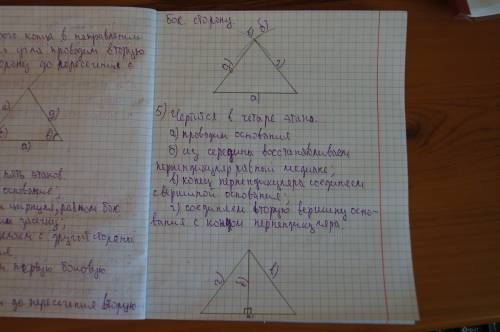 ого конца в направлении
угла проводим вторую
сторону до пересечения с
д)
а)
пять этапов
основание,
циркуля, равном бок
с другой стороны
первую боковую
до пересечения вторую
бок. сторону.
в) б)
д) г)
а)
5) Чертится в четыре этапа.
а) проводим основания
б) из середина восстанавливаем
перпендикуляр равный медиане,
в) конец перпендикуляра соединяем
с вершиной основания,
г) соединяем вторую вершину осно-
вания с концом перпендикуляра.
г) б) в)